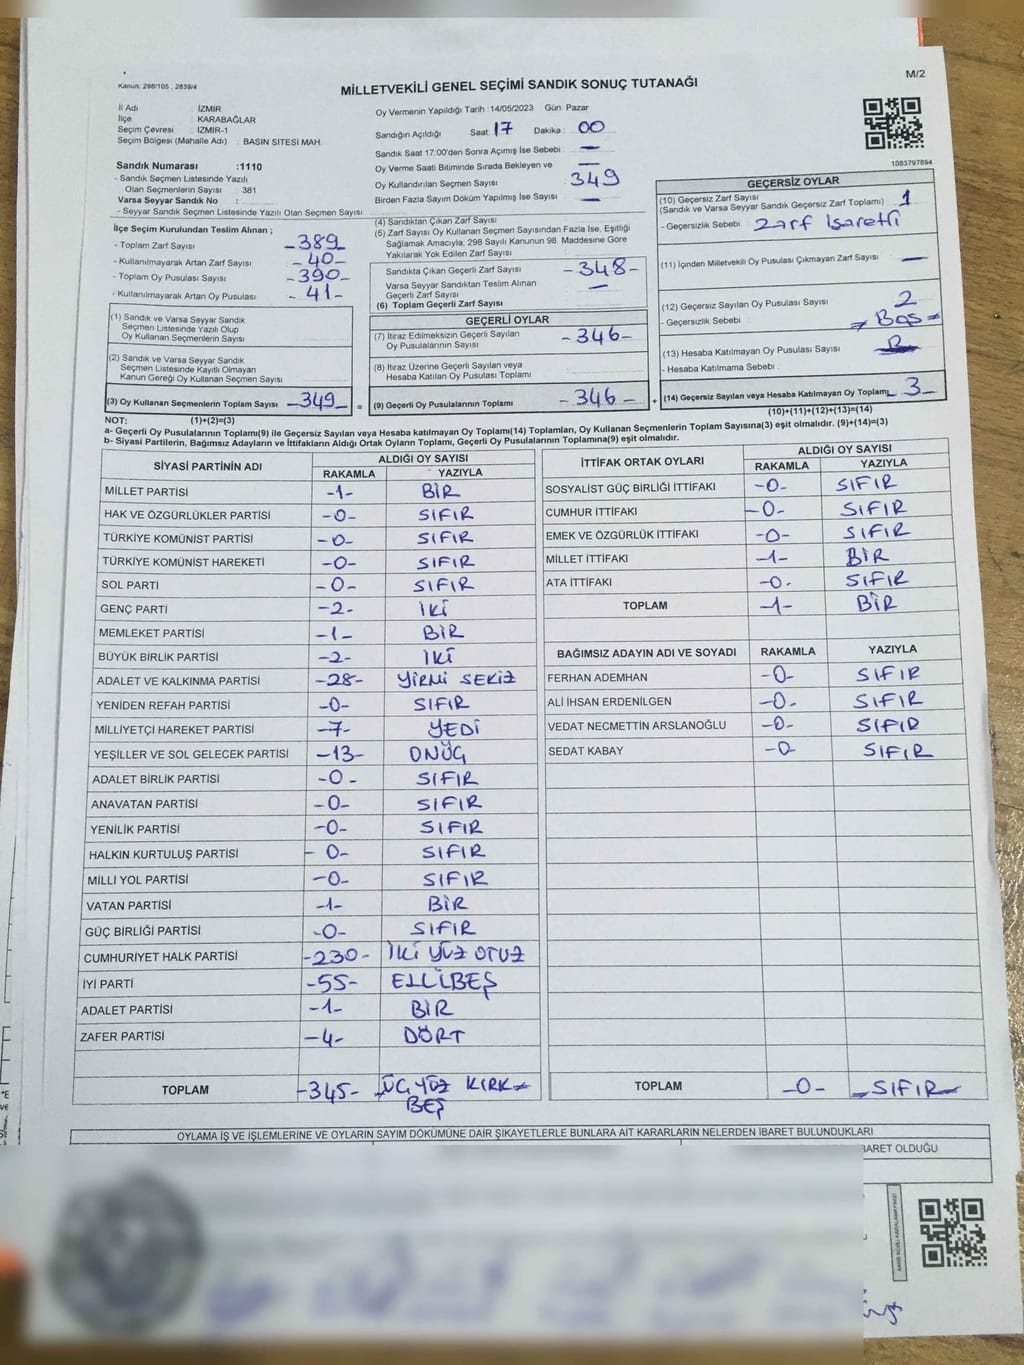 M/2
Kanun: 298/105 , 2839/4
MİLLETVEKİLİ GENEL SEÇİMİ SANDIK SONUÇ TUTANAĞI
İl Adı : İZMİR
İlçe : KARABAĞLAR
Seçim Çevresi : İZMİR-1
Seçim Bölgesi (Mahalle Adı) : BASIN SITESI MAH.
Oy Vermenin Yapıldığı Tarih :14/05/2023 Gün: Pazar
Sandığın Açıldığı Saat: 17 Dakika : 00
Sandık Saat 17:00'den Sonra Açımış İse Sebebi : —
Oy Verme Saati Bitiminde Sırada Bekleyen ve —
Oy Kullandırılan Seçmen Sayısı 349
Birden Fazla Sayım Döküm Yapılmış İse Sayısı —
1083797894
Sandık Numarası :1110
- Sandık Seçmen Listesinde Yazılı
Olan Seçmenlerin Sayısı : 381
Varsa Seyyar Sandık No :
- Seyyar Sandık Seçmen Listesinde Yazılı Olan Seçmen Sayısı
İlçe Seçim Kurulundan Teslim Alınan ;
- Toplam Zarf Sayısı -389-
- Kullanılmayarak Artan Zarf Sayısı -40-
- Toplam Oy Pusulası Sayısı -390-
- Kullanılmayarak Artan Oy Pusulası -41-
(1) Sandık ve Varsa Seyyar Sandık
Seçmen Listesinde Yazılı Olup
Oy Kullanan Seçmenlerin Sayısı
(2) Sandık ve Varsa Seyyar Sandık
Seçmen Listesinde Kayıtlı Olmayan
Kanun Gereği Oy Kullanan Seçmen Sayısı
(3) Oy Kullanan Seçmenlerin Toplam Sayısı -349- =
(1)+(2)=(3)
(4) Sandıktan Çıkan Zarf Sayısı
(5) Zarf Sayısı Oy Kullanan Seçmen Sayısından Fazla İse, Eşitliği
Sağlamak Amacıyla, 298 Sayılı Kanunun 98. Maddesine Göre
Yakılarak Yok Edilen Zarf Sayısı
Sandıkta Çıkan Geçerli Zarf Sayısı -348-
Varsa Seyyar Sandıktan Teslim Alınan —
Geçerli Zarf Sayısı
(6) Toplam Geçerli Zarf Sayısı
GEÇERLİ OYLAR
(7) İtiraz Edilmeksizin Geçerli Sayılan
Oy Pusulalarının Sayısı -346-
(8) İtiraz Üzerine Geçerli Sayılan veya
Hesaba Katılan Oy Pusulası Toplamı
(9) Geçerli Oy Pusulalarının Toplamı -346- +
GEÇERSİZ OYLAR
(10) Geçersiz Zarf Sayısı
(Sandık ve Varsa Seyyar Sandık Geçersiz Zarf Toplamı) 1
- Geçersizlik Sebebi : Zarf İsaretli
(11) İçinden Milletvekili Oy Pusulası Çıkmayan Zarf Sayısı —
(12) Geçersiz Sayılan Oy Pusulası Sayısı 2
- Geçersizlik Sebebi = Boş =
(13) Hesaba Katılmayan Oy Pusulası Sayısı
- Hesaba Katılmama Sebebi :
(14) Geçersiz Sayılan veya Hesaba Katılmayan Oy Toplamı -3-
(10)+(11)+(12)+(13)=(14)
NOT:
a- Geçerli Oy Pusulalarının Toplamı(9) ile Geçersiz Sayılan veya Hesaba Katılmayan Oy Toplamı(14) Toplamları, Oy Kullanan Seçmenlerin Toplam Sayısına(3) eşit olmalıdır. (9)+(14)=(3)
b- Siyasi Partilerin, Bağımsız Adayların ve İttifakların Aldığı Ortak Oyların Toplamı, Geçerli Oy Pusulalarının Toplamına(9) eşit olmalıdır.
SİYASİ PARTİNİN ADI ALDIĞI OY SAYISI
RAKAMLA YAZIYLA
MİLLET PARTİSİ -1- BİR
HAK VE ÖZGÜRLÜKLER PARTİSİ -0- SIFIR
TÜRKİYE KOMÜNİST PARTİSİ -0- SIFIR
TÜRKİYE KOMÜNİST HAREKETİ -0- SIFIR
SOL PARTİ -0- SIFIR
GENÇ PARTİ -2- İKİ
MEMLEKET PARTİSİ -1- BİR
BÜYÜK BİRLİK PARTİSİ -2- İKİ
ADALET VE KALKINMA PARTİSİ -28- YİRMİ SEKİZ
YENİDEN REFAH PARTİSİ -0- SIFIR
MİLLİYETÇİ HAREKET PARTİSİ -7- YEDİ
YEŞİLLER VE SOL GELECEK PARTİSİ -13- ONÜÇ
ADALET BİRLİK PARTİSİ -0- SIFIR
ANAVATAN PARTİSİ -0- SIFIR
YENİLİK PARTİSİ -0- SIFIR
HALKIN KURTULUŞ PARTİSİ -0- SIFIR
MİLLİ YOL PARTİSİ -0- SIFIR
VATAN PARTİSİ -1- BİR
GÜÇ BİRLİĞİ PARTİSİ -0- SIFIR
CUMHURİYET HALK PARTİSİ -230- İKİ YÜZ OTUZ
İYİ PARTİ -55- ELLİBEŞ
ADALET PARTİSİ -1- BİR
ZAFER PARTİSİ -4- DÖRT
TOPLAM -345- ÜÇ YÜZ KIRK
BEŞ
İTTİFAK ORTAK OYLARI ALDIĞI OY SAYISI
RAKAMLA YAZIYLA
SOSYALİST GÜÇ BİRLİĞİ İTTİFAKI -0- SIFIR
CUMHUR İTTİFAKI -0- SIFIR
EMEK VE ÖZGÜRLÜK İTTİFAKI -0- SIFIR
MİLLET İTTİFAKI -1- BİR
ATA İTTİFAKI -0- SIFIR
TOPLAM -1- BİR
BAĞIMSIZ ADAYIN ADI VE SOYADI RAKAMLA YAZIYLA
FERHAN ADEMHAN -0- SIFIR
ALİ İHSAN ERDENİLGEN -0- SIFIR
VEDAT NECMETTİN ARSLANOĞLU -0- SIFIR
SEDAT KABAY -0- SIFIR
TOPLAM -0- -SIFIR-
OYLAMA İŞ VE İŞLEMLERİNE VE OYLARIN SAYIM DÖKÜMÜNE DAİR ŞİKAYETLERLE BUNLARA AİT KARARLARIN NELERDEN İBARET BULUNDUKLARI
BARET OLDUĞU